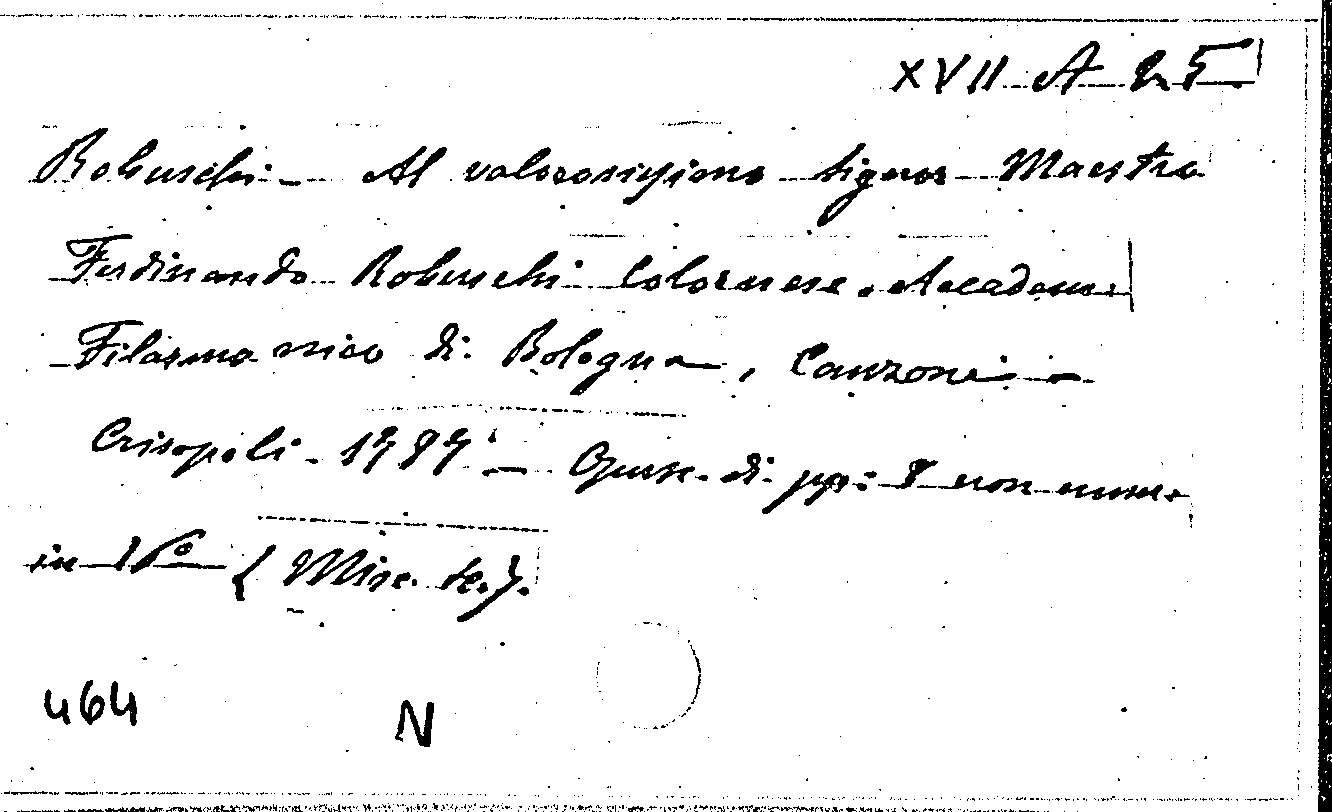 XVII A 25
Robuschi - Al valorosissimo Signor Maestro
Ferdinando Robuschi Colornese. Accadem.
Filarmonico di Bologna, Canzoni -
Crisopoli - 1787 - Opusc. di pp: 8 non num.
in 16º (Misc. te.).
464 N